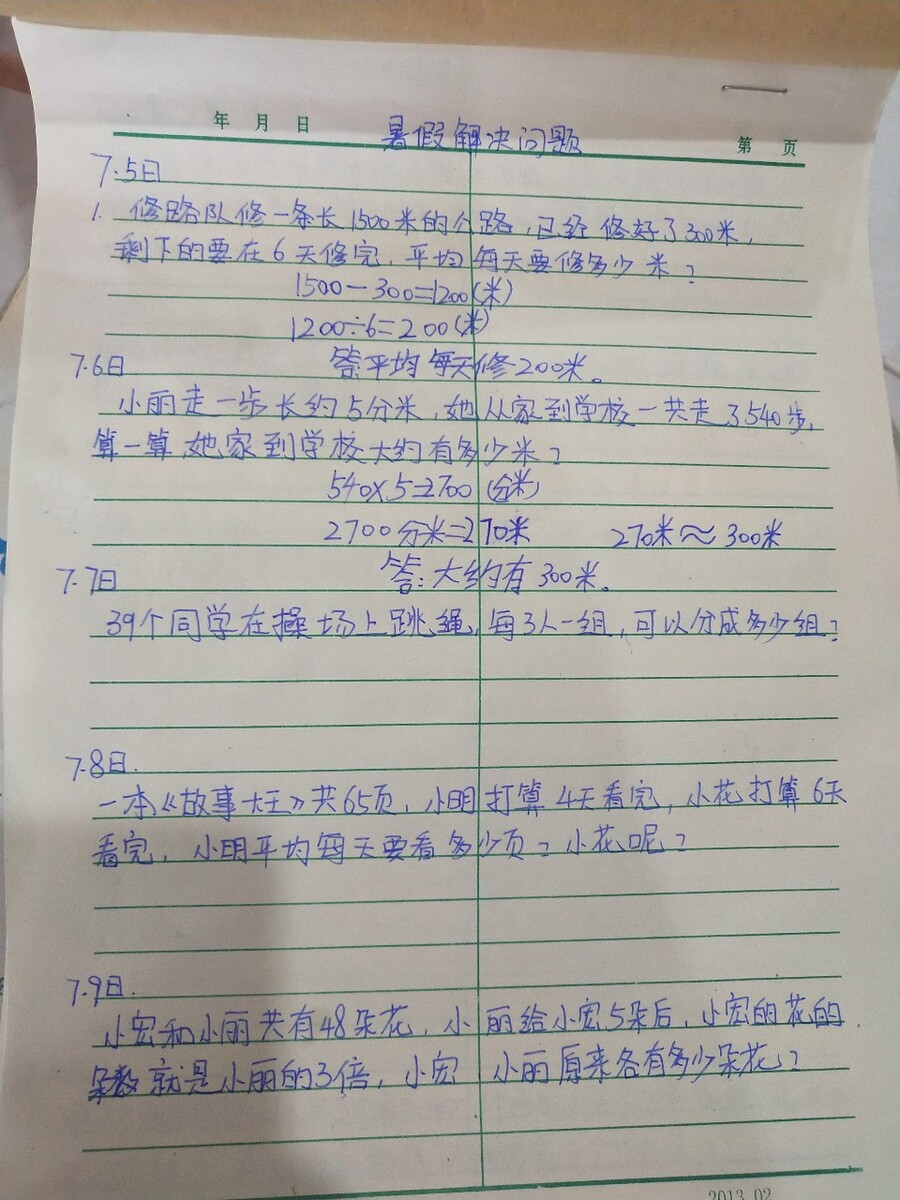 年 月 日
暑假解决问题
第 页
7.5日
1. 修路队修一条长1500米的公路,已经修好了300米,
剩下的要在6天修完,平均每天要修多少米?
1500-300=1200(米)
1200÷6=200(米)
答:平均每天修200米。
7.6日
小丽走一步长约5分米,她从家到学校一共走了540步,
算一算,她家到学校大约有多少米?
540×5=2700(分米)
2700分米=270米 270米≈300米
答:大约有300米。
7.7日
39个同学在操场上跳绳,每3人一组,可以分成多少组?
7.8日.
一本《故事大王》共65页,小明打算4天看完,小花打算6天
看完,小明平均每天要看多少页?小花呢?
7.9日.
小宏和小丽共有48朵花,小丽给小宏5朵后,小宏的花的
朵数就是小丽的3倍,小宏 小丽原来各有多少朵花?
2013.02